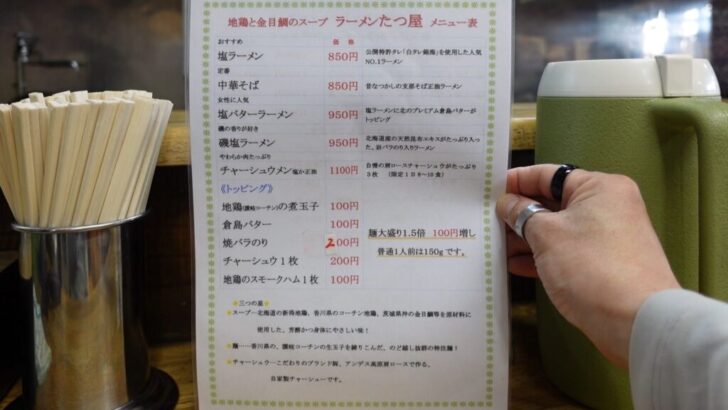 地鶏と金目鯛のスープ ラーメンたつ屋 メニュー表
おすすめ 価格
塩ラーメン 850円 公開特許タレ「白タレ鯛海」を使用した人気NO.1ラーメン
定番
中華そば 850円 昔なつかしの支那そば正油ラーメン
女性に人気
塩バターラーメン 950円 塩ラーメンに北のプレミアム倉島バターがトッピング
磯の香りが好き
磯塩ラーメン 950円 北海道産の天然昆布エキスがたっぷり入った、岩バラのり入りラーメン
やわらか肉たっぷり
チャーシュウメン 塩か正油 1100円 自慢の肩ロースチャーシュウがたっぷり3枚 (限定1日8~10食)
《トッピング》
地鶏(讃岐コーチン)の煮玉子 100円
倉島バター 100円
焼バラのり 200円
チャーシュウ1枚 200円
地鶏のスモークハム1枚 100円
麺大盛り1.5倍 100円増し
普通1人前は150gです。
★三つの星★
★スープ…北海道の新得地鶏、香川県のコーチン地鶏、茨城県沖の金目鯛等を原材料に
使用した、芳醇かつ身体にやさしい味!
★麺……香川県の、讃岐コーチンの生玉子を練りこんだ、のど越し抜群の特注麺!
★チャーシュウ…こだわりのブランド豚、アンデス高原豚ロースで作る、
自家製チャーシューです。